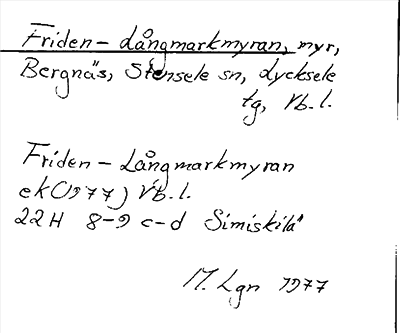 Friden - Långmarkmyran, myr,
Bergnäs, Stensele sn, Lycksele
tg, Vb. l.
Friden - Långmarkmyran
ek (1977) Vb. l.
22H 8-9 c-d Simiskilä
M. Lgn 1977